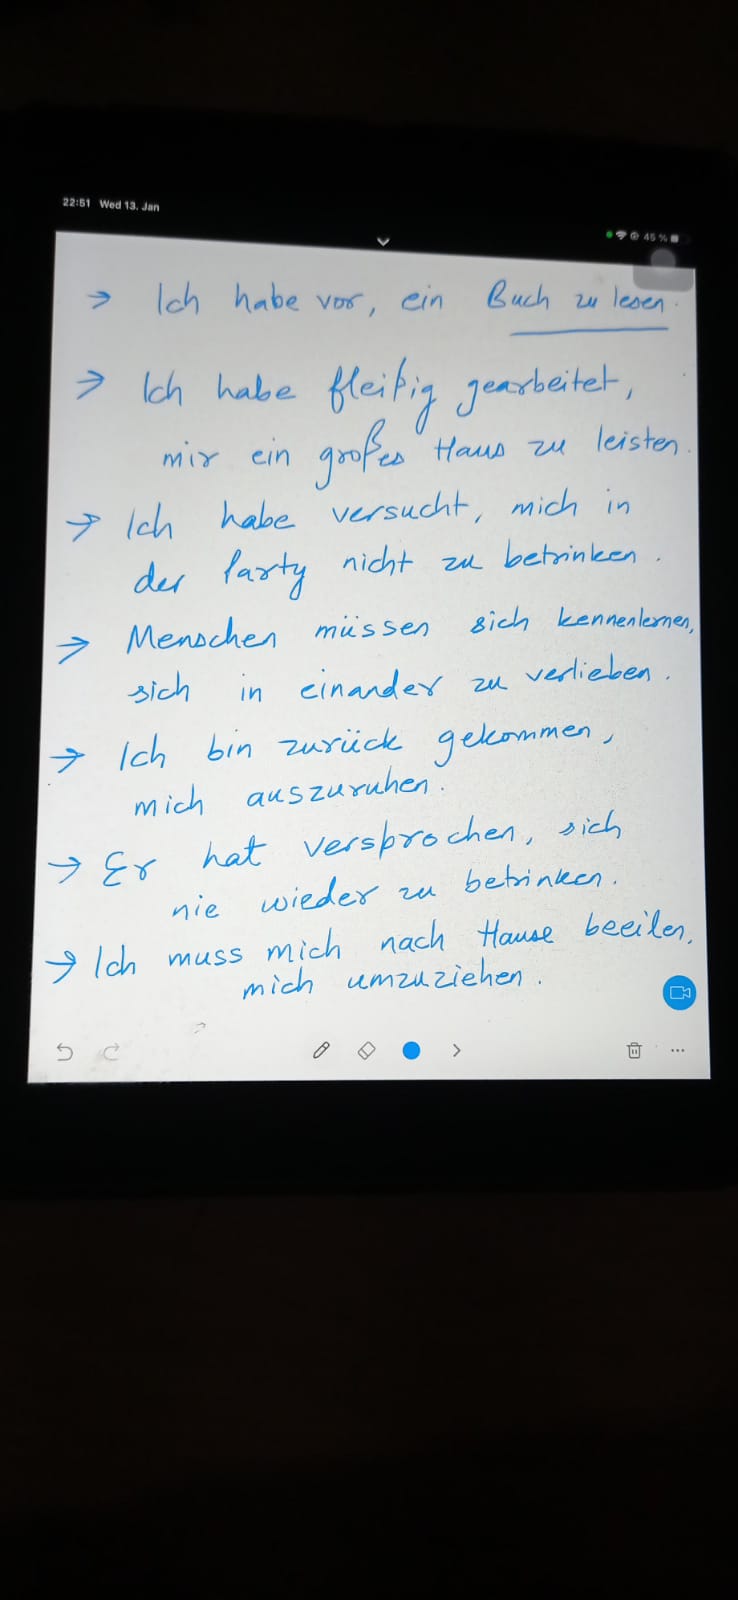 22:51 Wed 13. Jan
45 %
→ Ich habe vor, ein Buch zu lesen.
→ Ich habe fleißig gearbeitet,
mir ein großes Haus zu leisten.
→ Ich habe versucht, mich in
der Party nicht zu betrinken.
→ Menschen müssen sich kennenlernen,
sich in einander zu verlieben.
→ Ich bin zurück gekommen,
mich auszuruhen.
→ Er hat versprochen, sich
nie wieder zu betrinken.
→ Ich muss mich nach Hause beeilen,
mich umzuziehen.